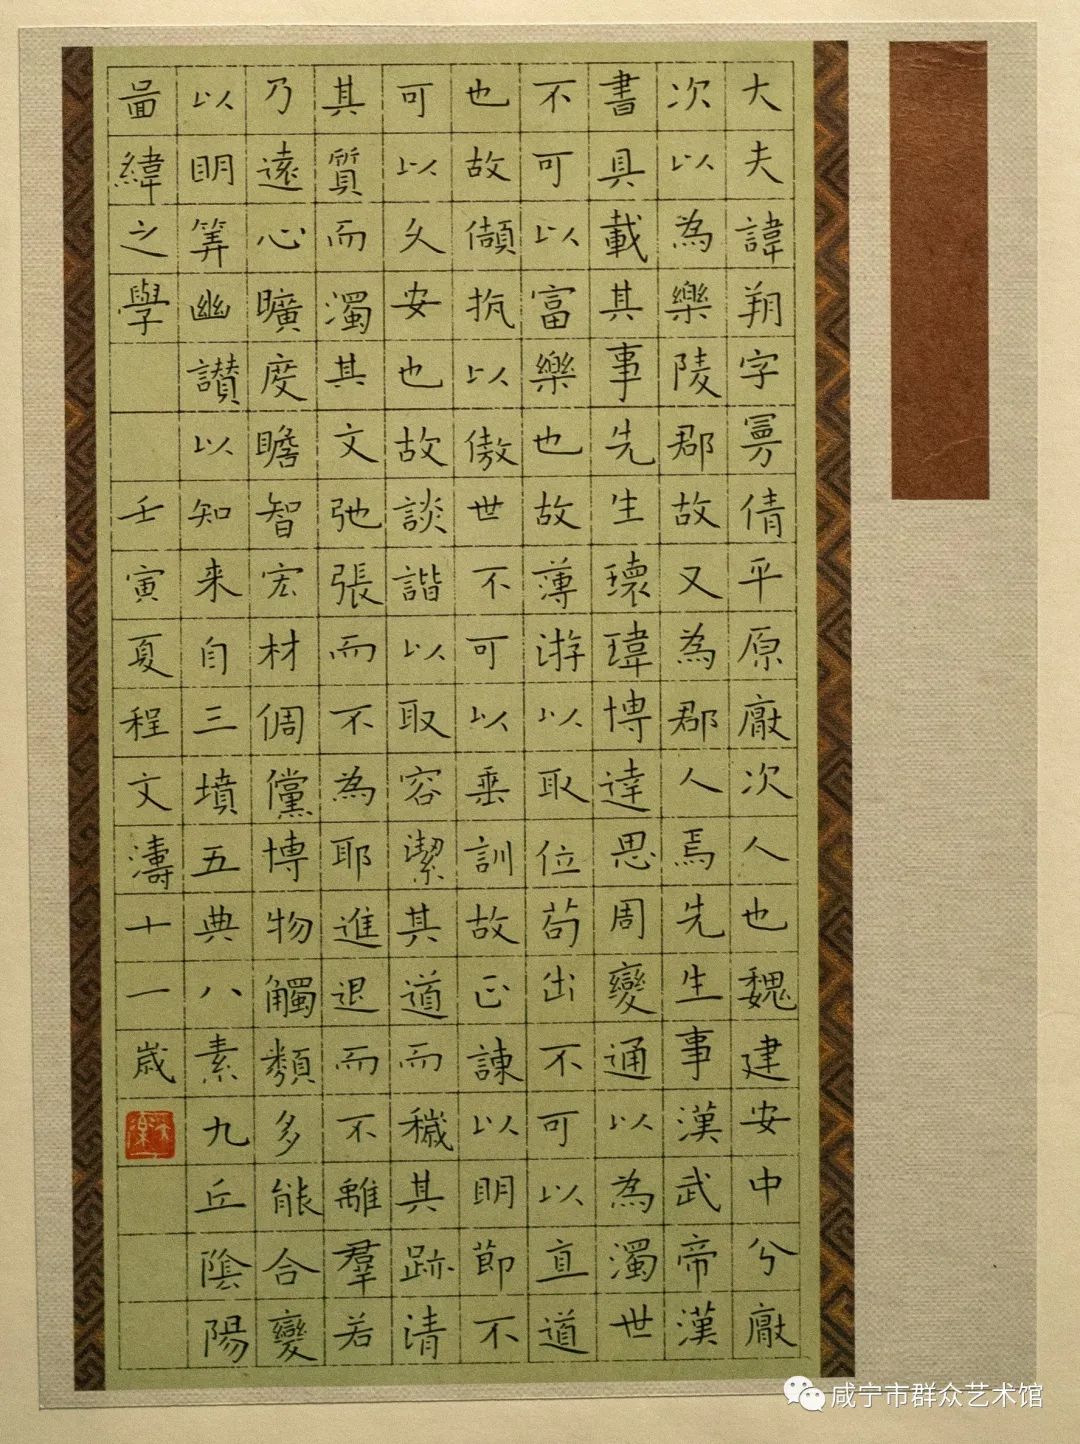 大夫諱朔字曼倩平原厭次人也魏建安中分厭
次以為樂陵郡故又為郡人焉先生事漢武帝漢
書具載其事先生瓌瑋博達思周變通以為濁世
不可以富樂也故薄游以取位苟出不可以直道
也故頡抗以傲世不可以垂訓故正諫以明節不
可以久安也故談諧以取容潔其道而穢其跡清
其質而濁其文弛張而不為耶進退而不離羣若
乃遠心曠度瞻智宏材倜儻博物觸類多能合變
以明筭幽讚以知来自三墳五典八素九丘陰陽
啚緯之學 壬寅夏程文濤十一歲
咸宁市群众艺术馆